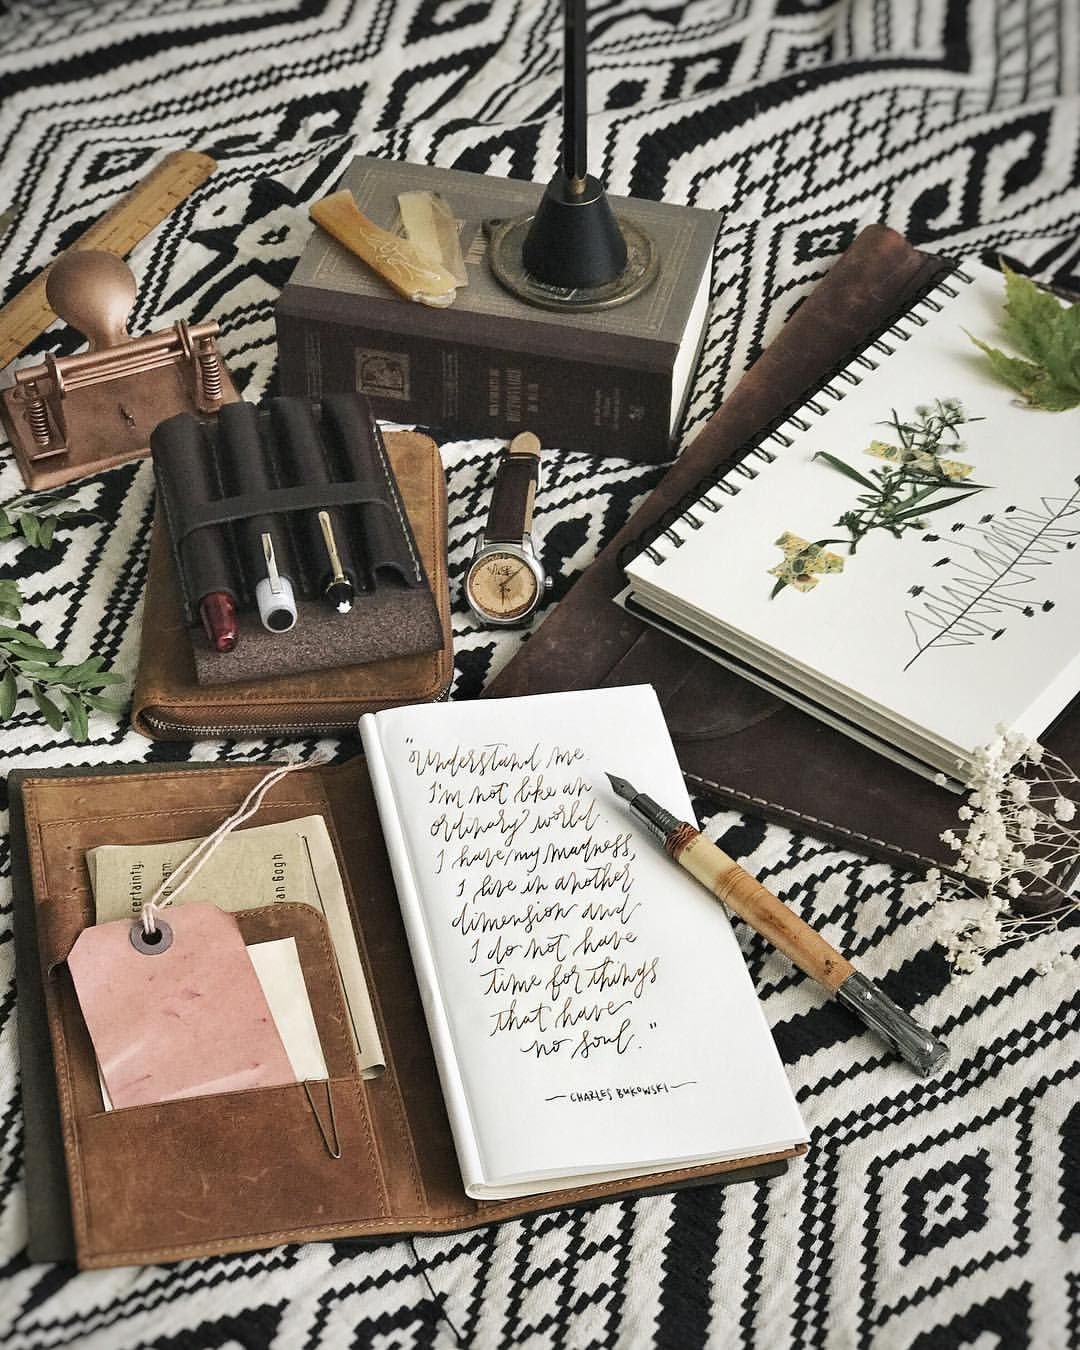 "Understand me.
I'm not like an
ordinary world.
I have my madness,
I live in another
dimension and
I do not have
time for things
that have
no soul."
— CHARLES BUKOWSKI —
certainty.
van Gogh